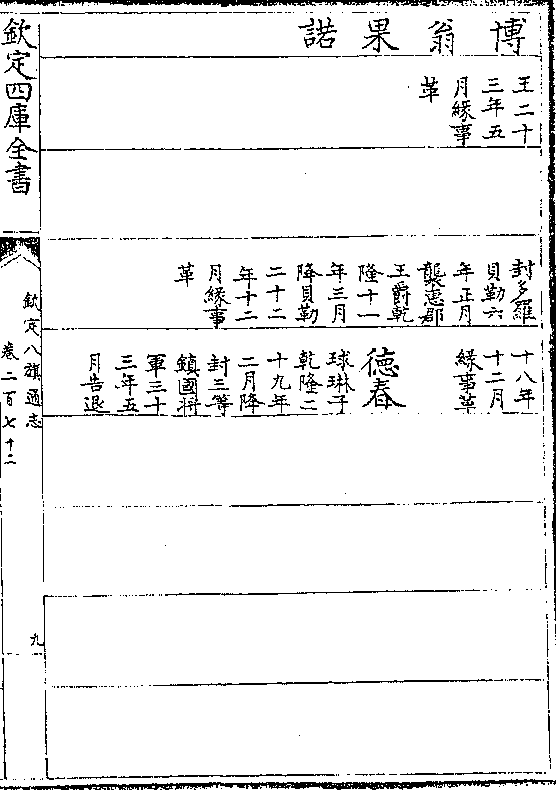 博翁果諾
王二十
三年五
月緣事
革
封多羅
貝勒六
年正月
襲惠郡
王爵乾
隆十一
年三月
降貝勒
二十二
年十二
月緣事
革
十八年
十二月
緣事革
德春
球琳子
乾隆二
十九年
二月降
封三等
鎮國將
軍三十
三年五
月告退
欽定四庫全書
欽定八旗通志
卷二百七十二
九